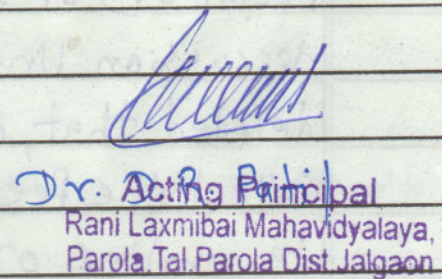 Dr. D. R. Patil
Acting Principal
Rani Laxmibai Mahavidyalaya,
Parola, Tal.Parola Dist.Jalgaon